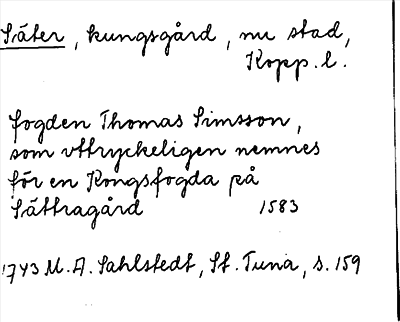 Säter, kungsgård, nu stad,
Kopp.l.
fogden Thomas Simsson,
som vttryckeligen nemnes
för en Kongsfogda på
Sättragård 1583
1743 M.A. Sahlstedt, St. Tuna, s. 159